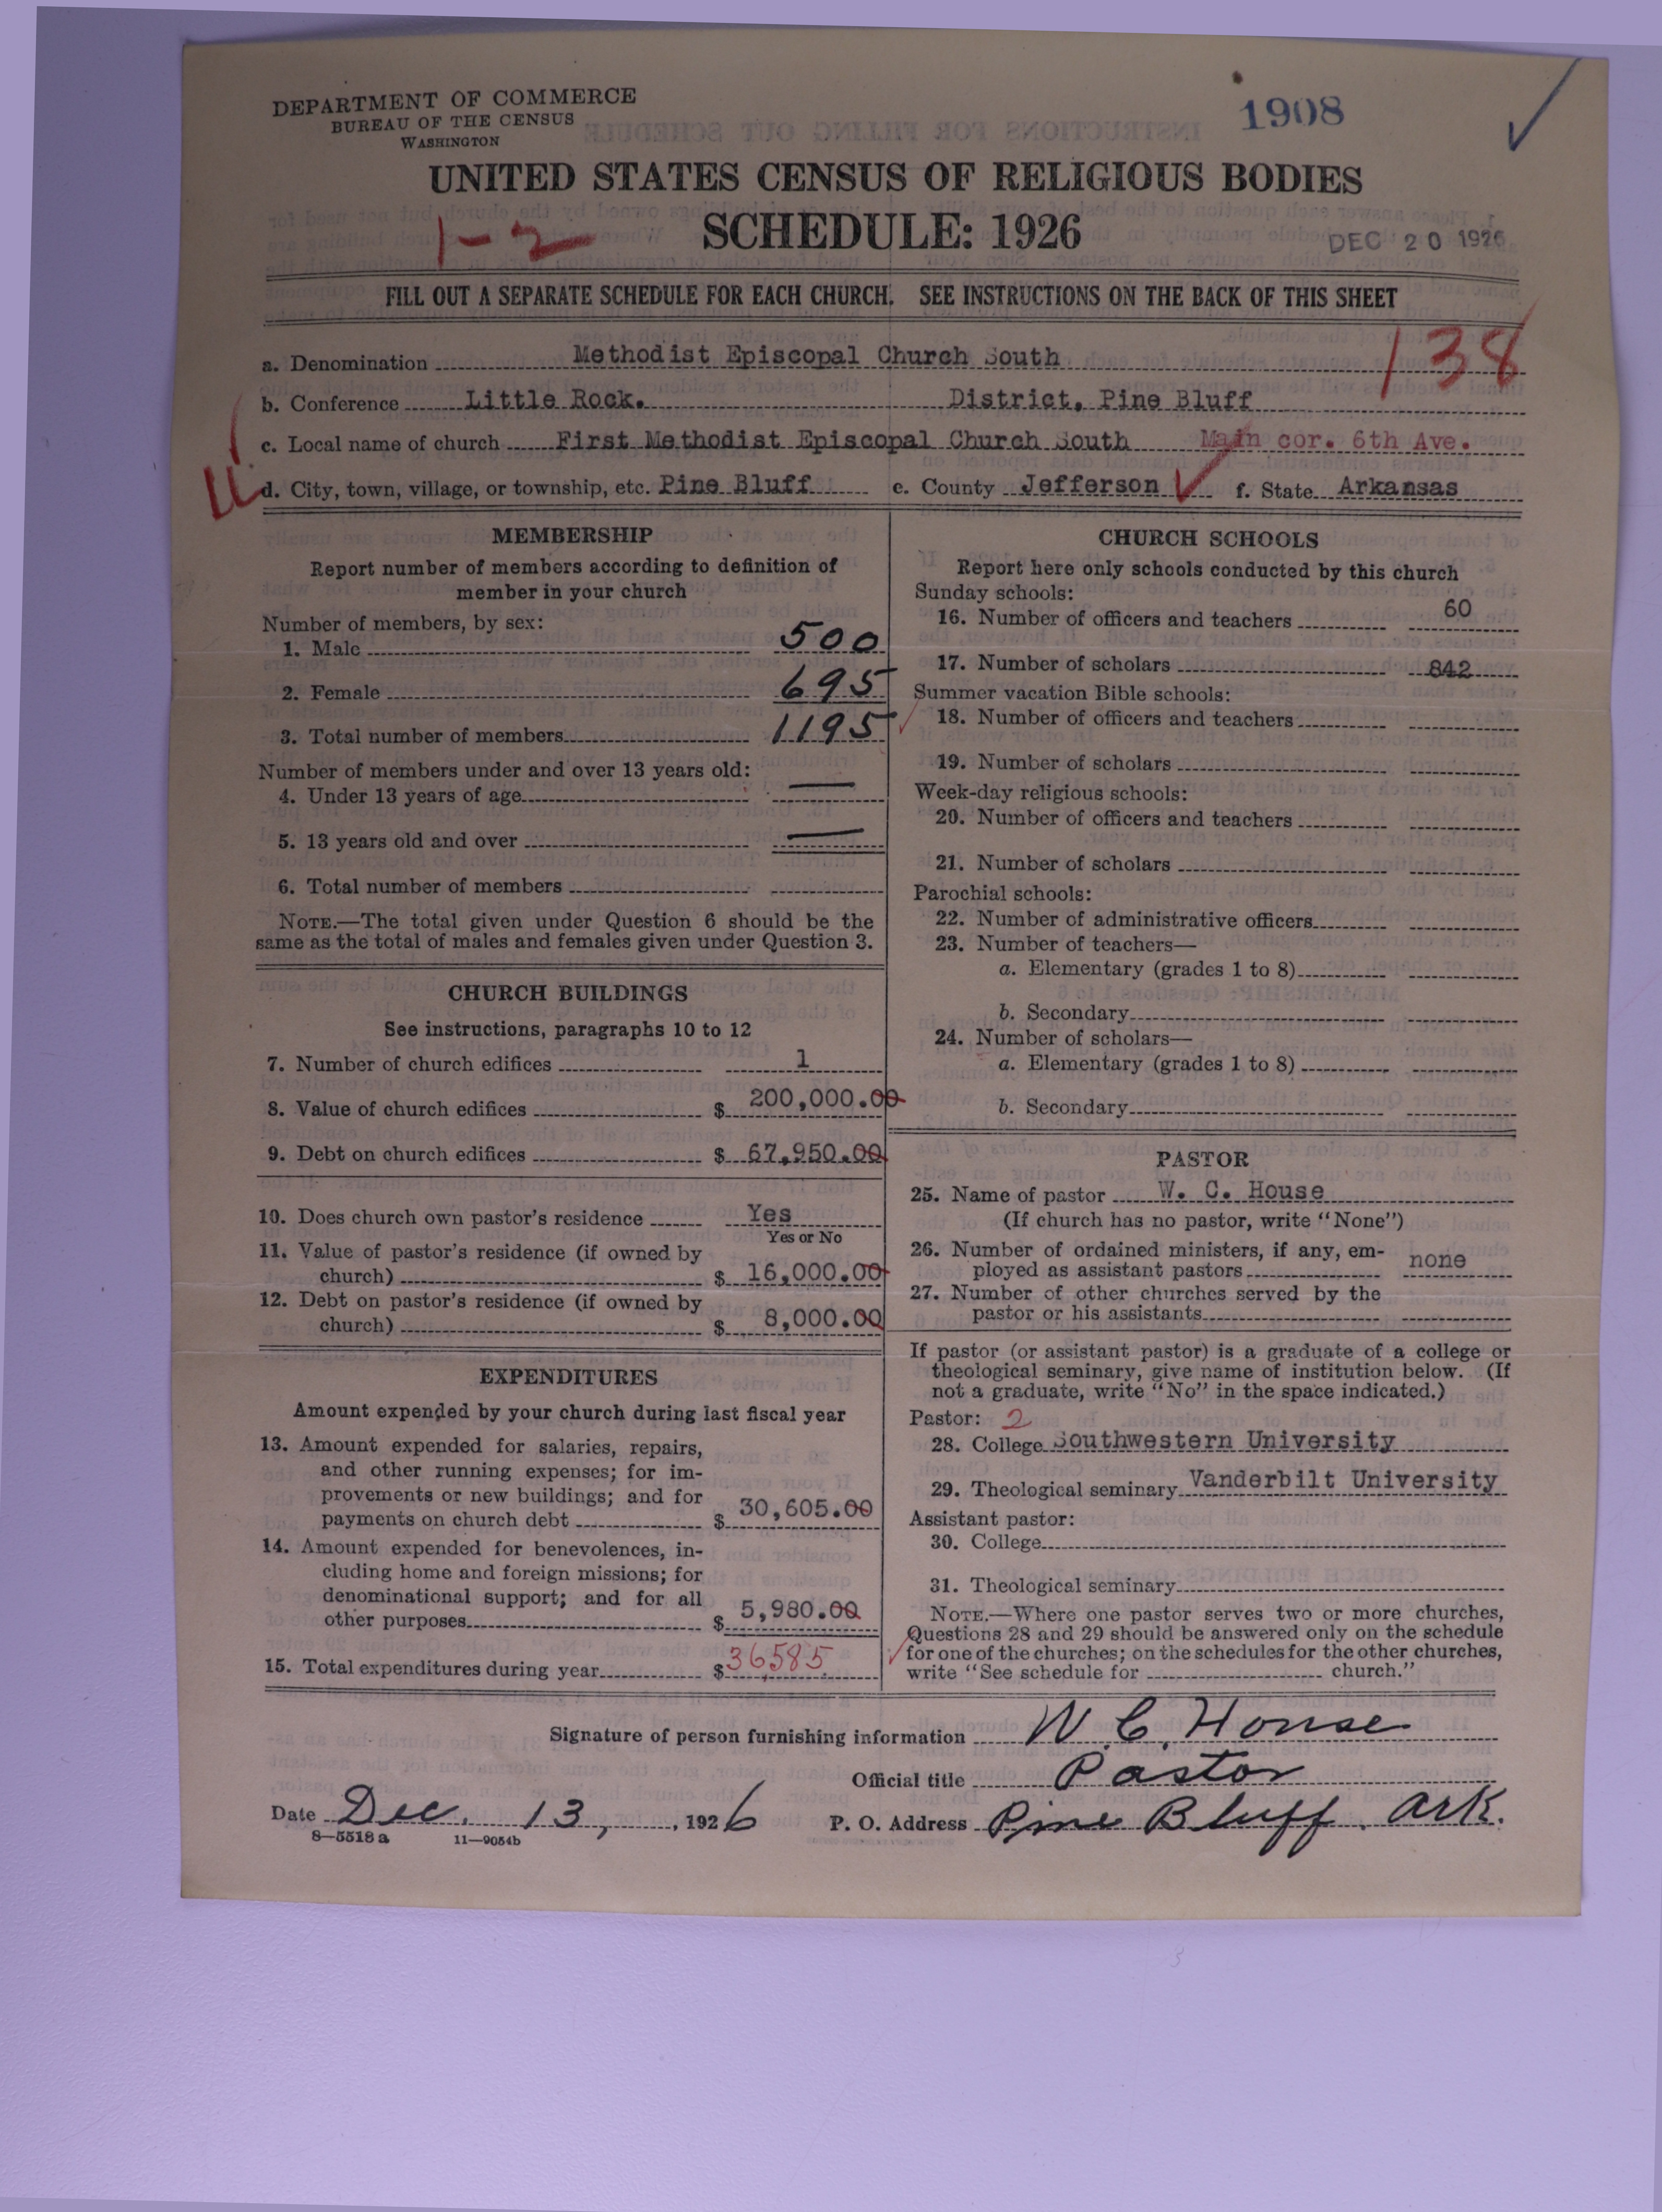 DEPARTMENT OF COMMERCE
BUREAU OF THE CENSUS
WASHINGTON
1908
UNITED STATES CENSUS OF RELIGIOUS BODIES
1-2
SCHEDULE: 1926
DEC 20 1926
FILL OUT A SEPARATE SCHEDULE FOR EACH CHURCH. SEE INSTRUCTIONS ON THE BACK OF THIS SHEET
138
a. Denomination Methodist Episcopal Church South
b. Conference Little Rock. District, Pine Bluff
c. Local name of church First Methodist Episcopal Church South Main cor. 6th Ave.
d. City, town, village, or township, etc. Pine Bluff e. County Jefferson f. State Arkansas
MEMBERSHIP
Report number of members according to definition of
member in your church
Number of members, by sex:
1. Male 500
2. Female 695
3. Total number of members 1195
Number of members under and over 13 years old:
4. Under 13 years of age —
5. 13 years old and over —
6. Total number of members
NOTE.—The total given under Question 6 should be the
same as the total of males and females given under Question 3.
CHURCH BUILDINGS
See instructions, paragraphs 10 to 12
7. Number of church edifices 1
8. Value of church edifices $ 200,000.00
9. Debt on church edifices $ 67,950.00
10. Does church own pastor's residence Yes
Yes or No
11. Value of pastor's residence (if owned by
church) $ 16,000.00
12. Debt on pastor's residence (if owned by
church) $ 8,000.00
EXPENDITURES
Amount expended by your church during last fiscal year
13. Amount expended for salaries, repairs,
and other running expenses; for im-
provements or new buildings; and for
payments on church debt $ 30,605.00
14. Amount expended for benevolences, in-
cluding home and foreign missions; for
denominational support; and for all
other purposes $ 5,980.00
15. Total expenditures during year $ 36,585
CHURCH SCHOOLS
Report here only schools conducted by this church
Sunday schools:
16. Number of officers and teachers 60
17. Number of scholars 842
Summer vacation Bible schools:
18. Number of officers and teachers
19. Number of scholars
Week-day religious schools:
20. Number of officers and teachers
21. Number of scholars
Parochial schools:
22. Number of administrative officers
23. Number of teachers—
a. Elementary (grades 1 to 8)
b. Secondary
24. Number of scholars—
a. Elementary (grades 1 to 8)
b. Secondary
PASTOR
25. Name of pastor W. C. House
(If church has no pastor, write "None")
26. Number of ordained ministers, if any, em-
ployed as assistant pastors none
27. Number of other churches served by the
pastor or his assistants
If pastor (or assistant pastor) is a graduate of a college or
theological seminary, give name of institution below. (If
not a graduate, write "No" in the space indicated.)
Pastor: 2
28. College Southwestern University
29. Theological seminary Vanderbilt University
Assistant pastor:
30. College
31. Theological seminary
NOTE.—Where one pastor serves two or more churches,
Questions 28 and 29 should be answered only on the schedule
for one of the churches; on the schedules for the other churches,
write "See schedule for church."
Signature of person furnishing information W. C. House
Official title Pastor
Date Dec. 13, 1926 P. O. Address Pine Bluff, Ark.
8—5518 a 11—9054b